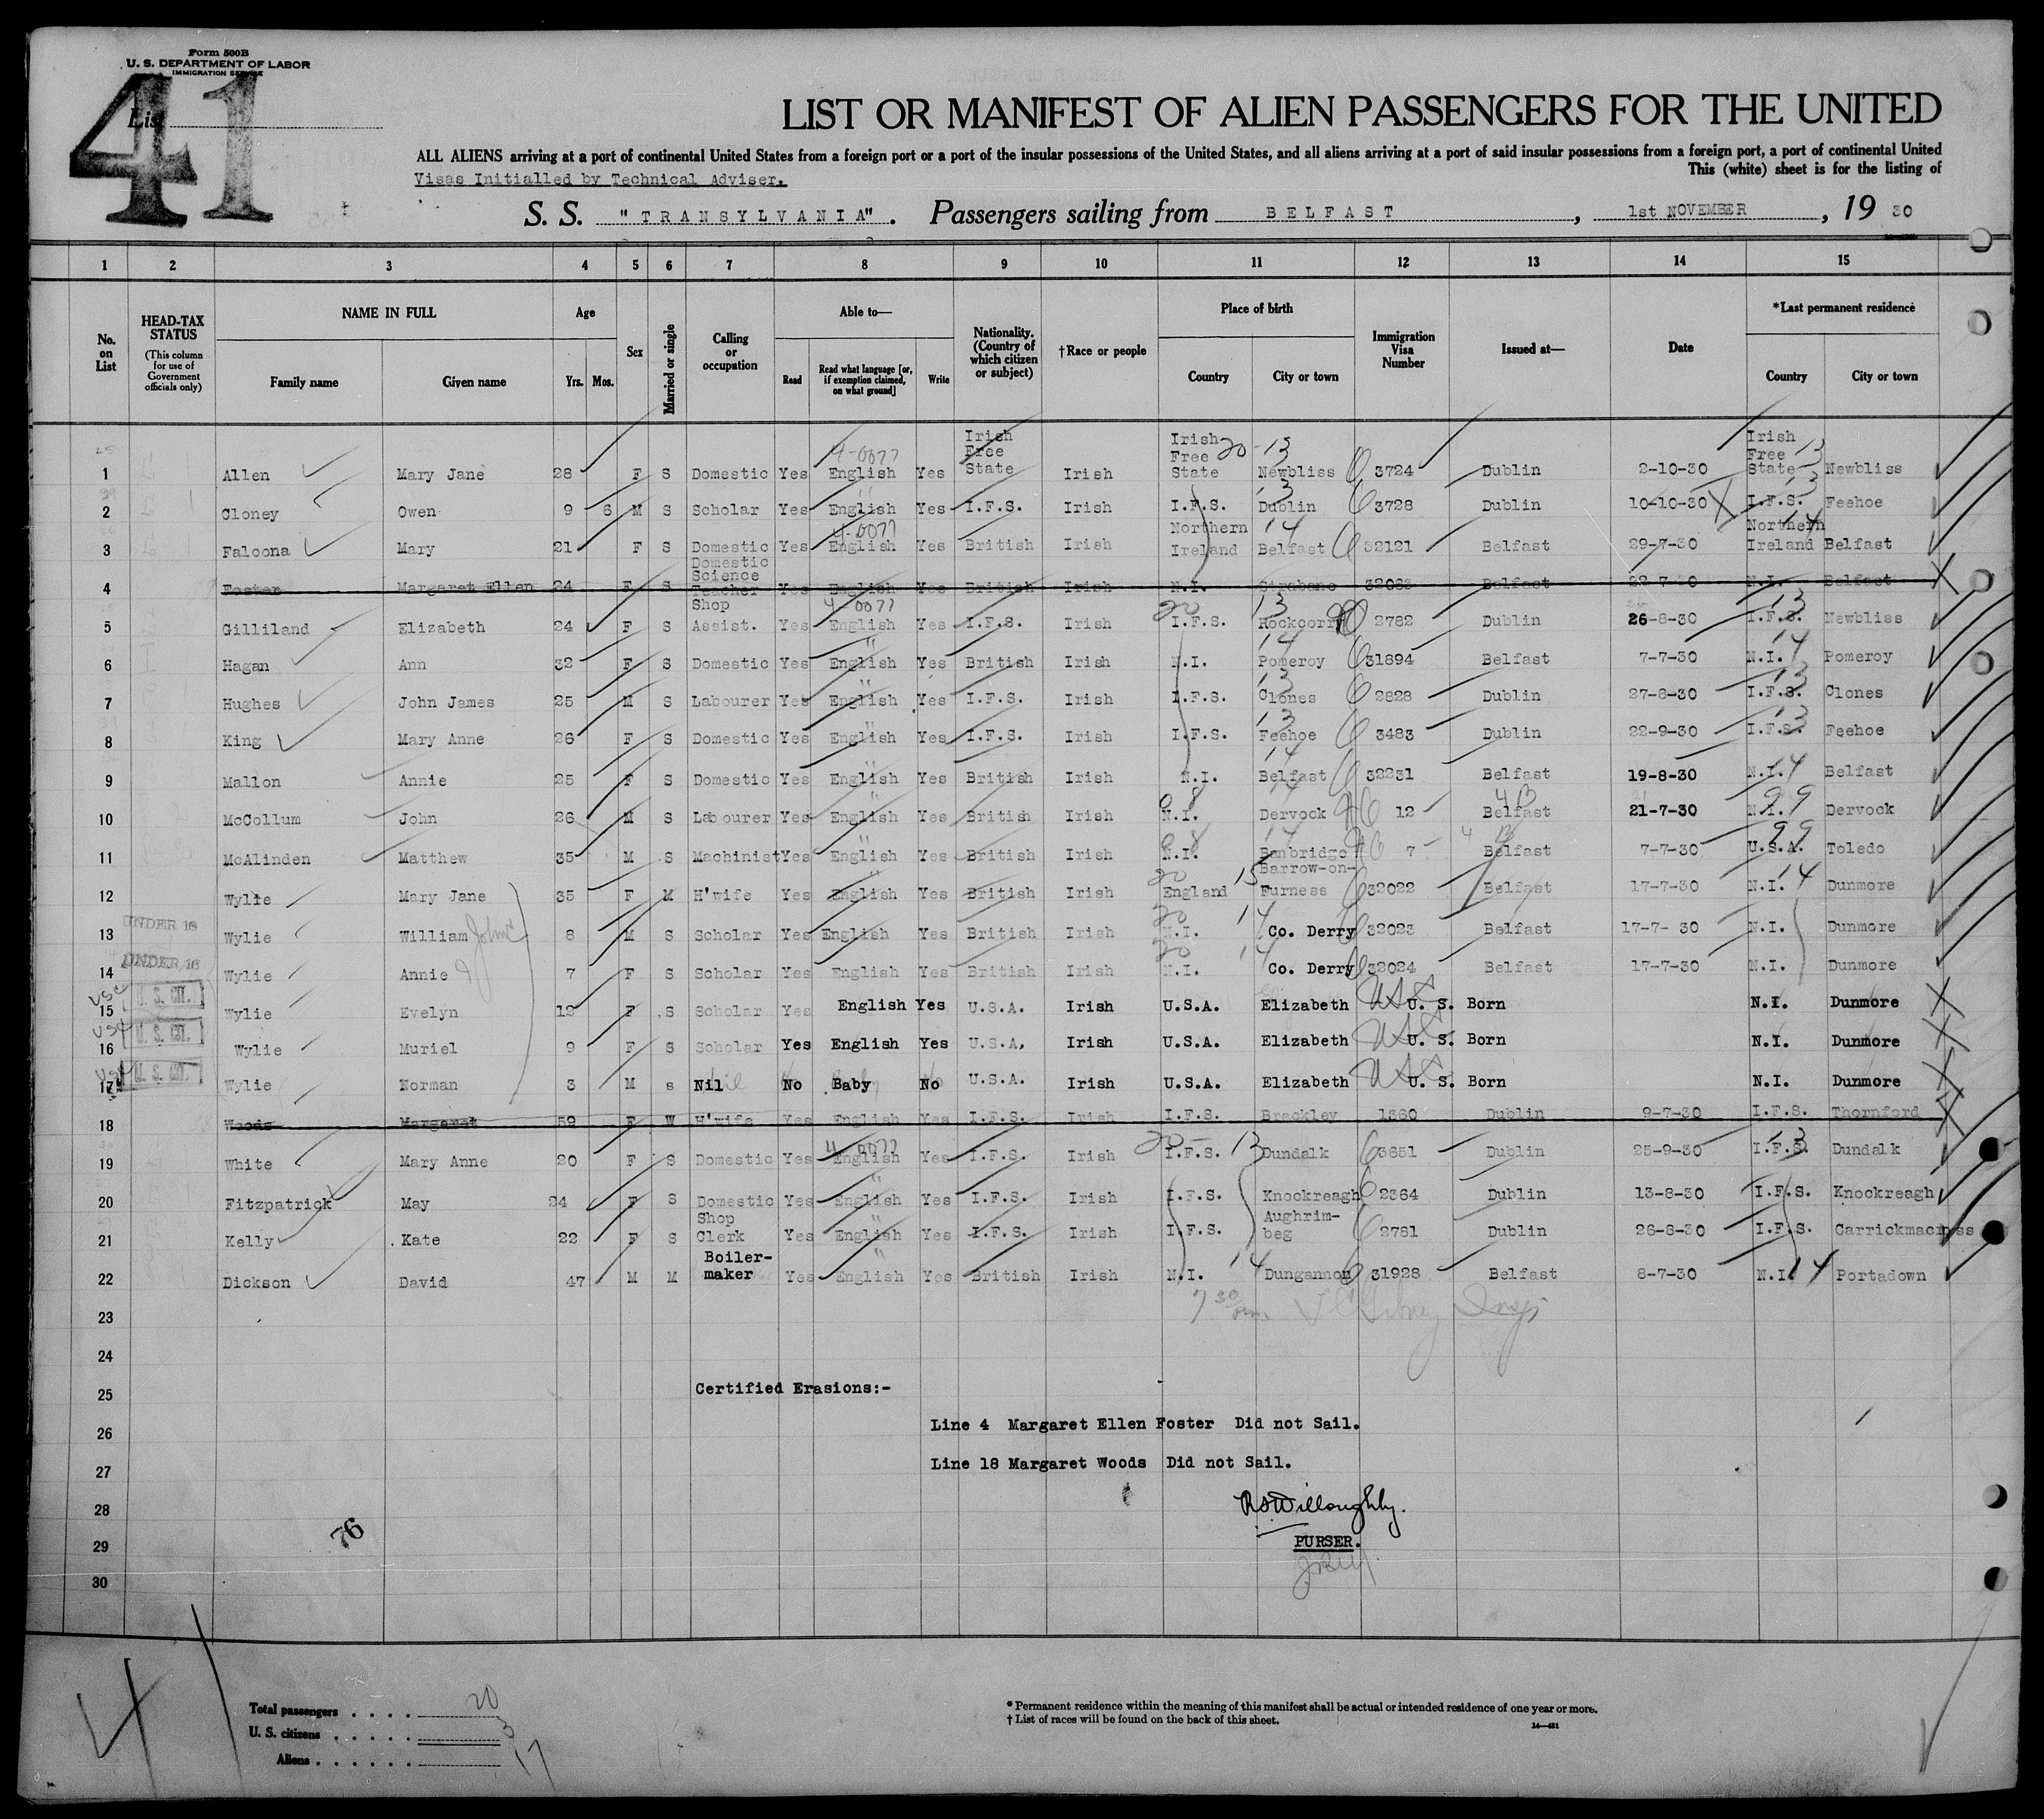 Form 500B
U. S. DEPARTMENT OF LABOR
IMMIGRATION SERVICE
41
List
LIST OR MANIFEST OF ALIEN PASSENGERS FOR THE UNITED
ALL ALIENS arriving at a port of continental United States from a foreign port or a port of the insular possessions of the United States, and all aliens arriving at a port of said insular possessions from a foreign port, a port of continental United
Visas Initialled by Technical Adviser. This (white) sheet is for the listing of
S. S. "TRANSYLVANIA". Passengers sailing from BELFAST, 1st NOVEMBER, 19 30
1 2 3 4 5 6 7 8 9 10 11 12 13 14 15
No. on List HEAD-TAX STATUS (This column for use of Government officials only) NAME IN FULL Family name Given name Age Yrs. Mos. Sex Married or single Calling or occupation Able to— Read Read what language [or, if exemption claimed, on what ground] Write Nationality. (Country of which citizen or subject) †Race or people Place of birth Country City or town Immigration Visa Number Issued at— Date *Last permanent residence Country City or town
1 Allen Mary Jane 28 F S Domestic Yes 4-0077 English Yes Irish Free State Irish Irish Free State 20-13 Newbliss 3724 Dublin 2-10-30 Irish Free State 13 Newbliss
2 Cloney Owen 9 6 M S Scholar Yes English Yes I.F.S. Irish I.F.S. 13 Dublin 3728 Dublin 10-10-30 I.F.S. 13 Feehoe
3 Faloona Mary 21 F S Domestic Yes 4-0077 English Yes British Irish Northern Ireland 14 Belfast 32121 Belfast 29-7-30 Northern Ireland 14 Belfast
4 Foster Margaret Ellen 24 F S Domestic Science Teacher Yes English Yes British Irish N.I. Strabane 32063 Belfast 22-7-30 N.I. Belfast
5 Gilliland Elizabeth 24 F S Shop Assist. Yes 4-0077 English Yes I.F.S. Irish 20 I.F.S. 13 Rockcorry 2782 Dublin 26-8-30 I.F.S. 13 Newbliss
6 Hagan Ann 32 F S Domestic Yes " English Yes British Irish N.I. 14 Pomeroy 31894 Belfast 7-7-30 N.I. 14 Pomeroy
7 Hughes John James 25 M S Labourer Yes " English Yes I.F.S. Irish I.F.S. 13 Clones 2828 Dublin 27-8-30 I.F.S. 13 Clones
8 King Mary Anne 26 F S Domestic Yes " English Yes I.F.S. Irish I.F.S. 13 Feehoe 3483 Dublin 22-9-30 I.F.S. 13 Feehoe
9 Mallon Annie 25 F S Domestic Yes " English Yes British Irish N.I. 14 Belfast 32231 Belfast 19-8-30 N.I. 14 Belfast
10 McCollum John 26 M S Labourer Yes " English Yes British Irish 08 N.I. 14 Dervock 12 Belfast 21-7-30 N.I. 99 Dervock
11 McAlinden Matthew 35 M S Machinist Yes " English Yes British Irish 08 N.I. 14 Banbridge 7 Belfast 7-7-30 U.S.A. 99 Toledo
12 Wylie Mary Jane 35 F M H'wife Yes " English Yes British Irish 20 England 15 Barrow-on-Furness 32022 Belfast 17-7-30 N.I. 14 Dunmore
UNDER 16
13 Wylie William John 8 M S Scholar Yes English Yes British Irish 20 N.I. 14 Co. Derry 32023 Belfast 17-7-30 N.I. Dunmore
UNDER 16
14 Wylie Annie 7 F S Scholar Yes English Yes British Irish 20 N.I. 14 Co. Derry 32024 Belfast 17-7-30 N.I. Dunmore
USC U. S. CIT.
15 Wylie Evelyn 12 F S Scholar Yes English Yes U.S.A. Irish U.S.A. Elizabeth USC U. S. Born N.I. Dunmore
USC U. S. CIT.
16 Wylie Muriel 9 F S Scholar Yes English Yes U.S.A. Irish U.S.A. Elizabeth USC U. S. Born N.I. Dunmore
USC U. S. CIT.
17 Wylie Norman 3 M s Nil No Baby No U.S.A. Irish U.S.A. Elizabeth USC U. S. Born N.I. Dunmore
18 Woods Margaret 59 F W H'wife Yes English Yes I.F.S. Irish I.F.S. Brackley 1360 Dublin 9-7-30 I.F.S. Thornford
19 White Mary Anne 20 F S Domestic Yes 4-0077 English Yes I.F.S. Irish 20 I.F.S. 13 Dundalk 3651 Dublin 25-9-30 I.F.S. 13 Dundalk
20 Fitzpatrick May 24 F S Domestic Yes " English Yes I.F.S. Irish I.F.S. Knockreagh 2364 Dublin 13-8-30 I.F.S. Knockreagh
21 Kelly Kate 22 F S Shop Clerk Yes " English Yes I.F.S. Irish I.F.S. Aughrim-beg 2781 Dublin 26-8-30 I.F.S. Carrickmacross
22 Dickson David 47 M M Boiler-maker Yes " English Yes British Irish N.I. 14 Dungannon 31928 Belfast 8-7-30 N.I. 14 Portadown
23 7 30 pm.
24
25 Certified Erasions:-
26 Line 4 Margaret Ellen Foster Did not Sail.
27 Line 18 Margaret Woods Did not Sail.
28 RSWilloughby.
76
29 PURSER.
30
Total passengers . . . . 20
U. S. citizens . . . . . 3
Aliens . . . . . . 17
* Permanent residence within the meaning of this manifest shall be actual or intended residence of one year or more.
† List of races will be found on the back of this sheet. 14—431